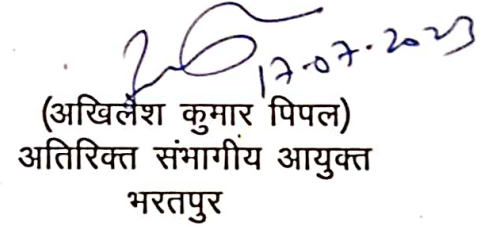 17.07.2023
(अखिलेश कुमार पिपल)
अतिरिक्त संभागीय आयुक्त
भरतपुर